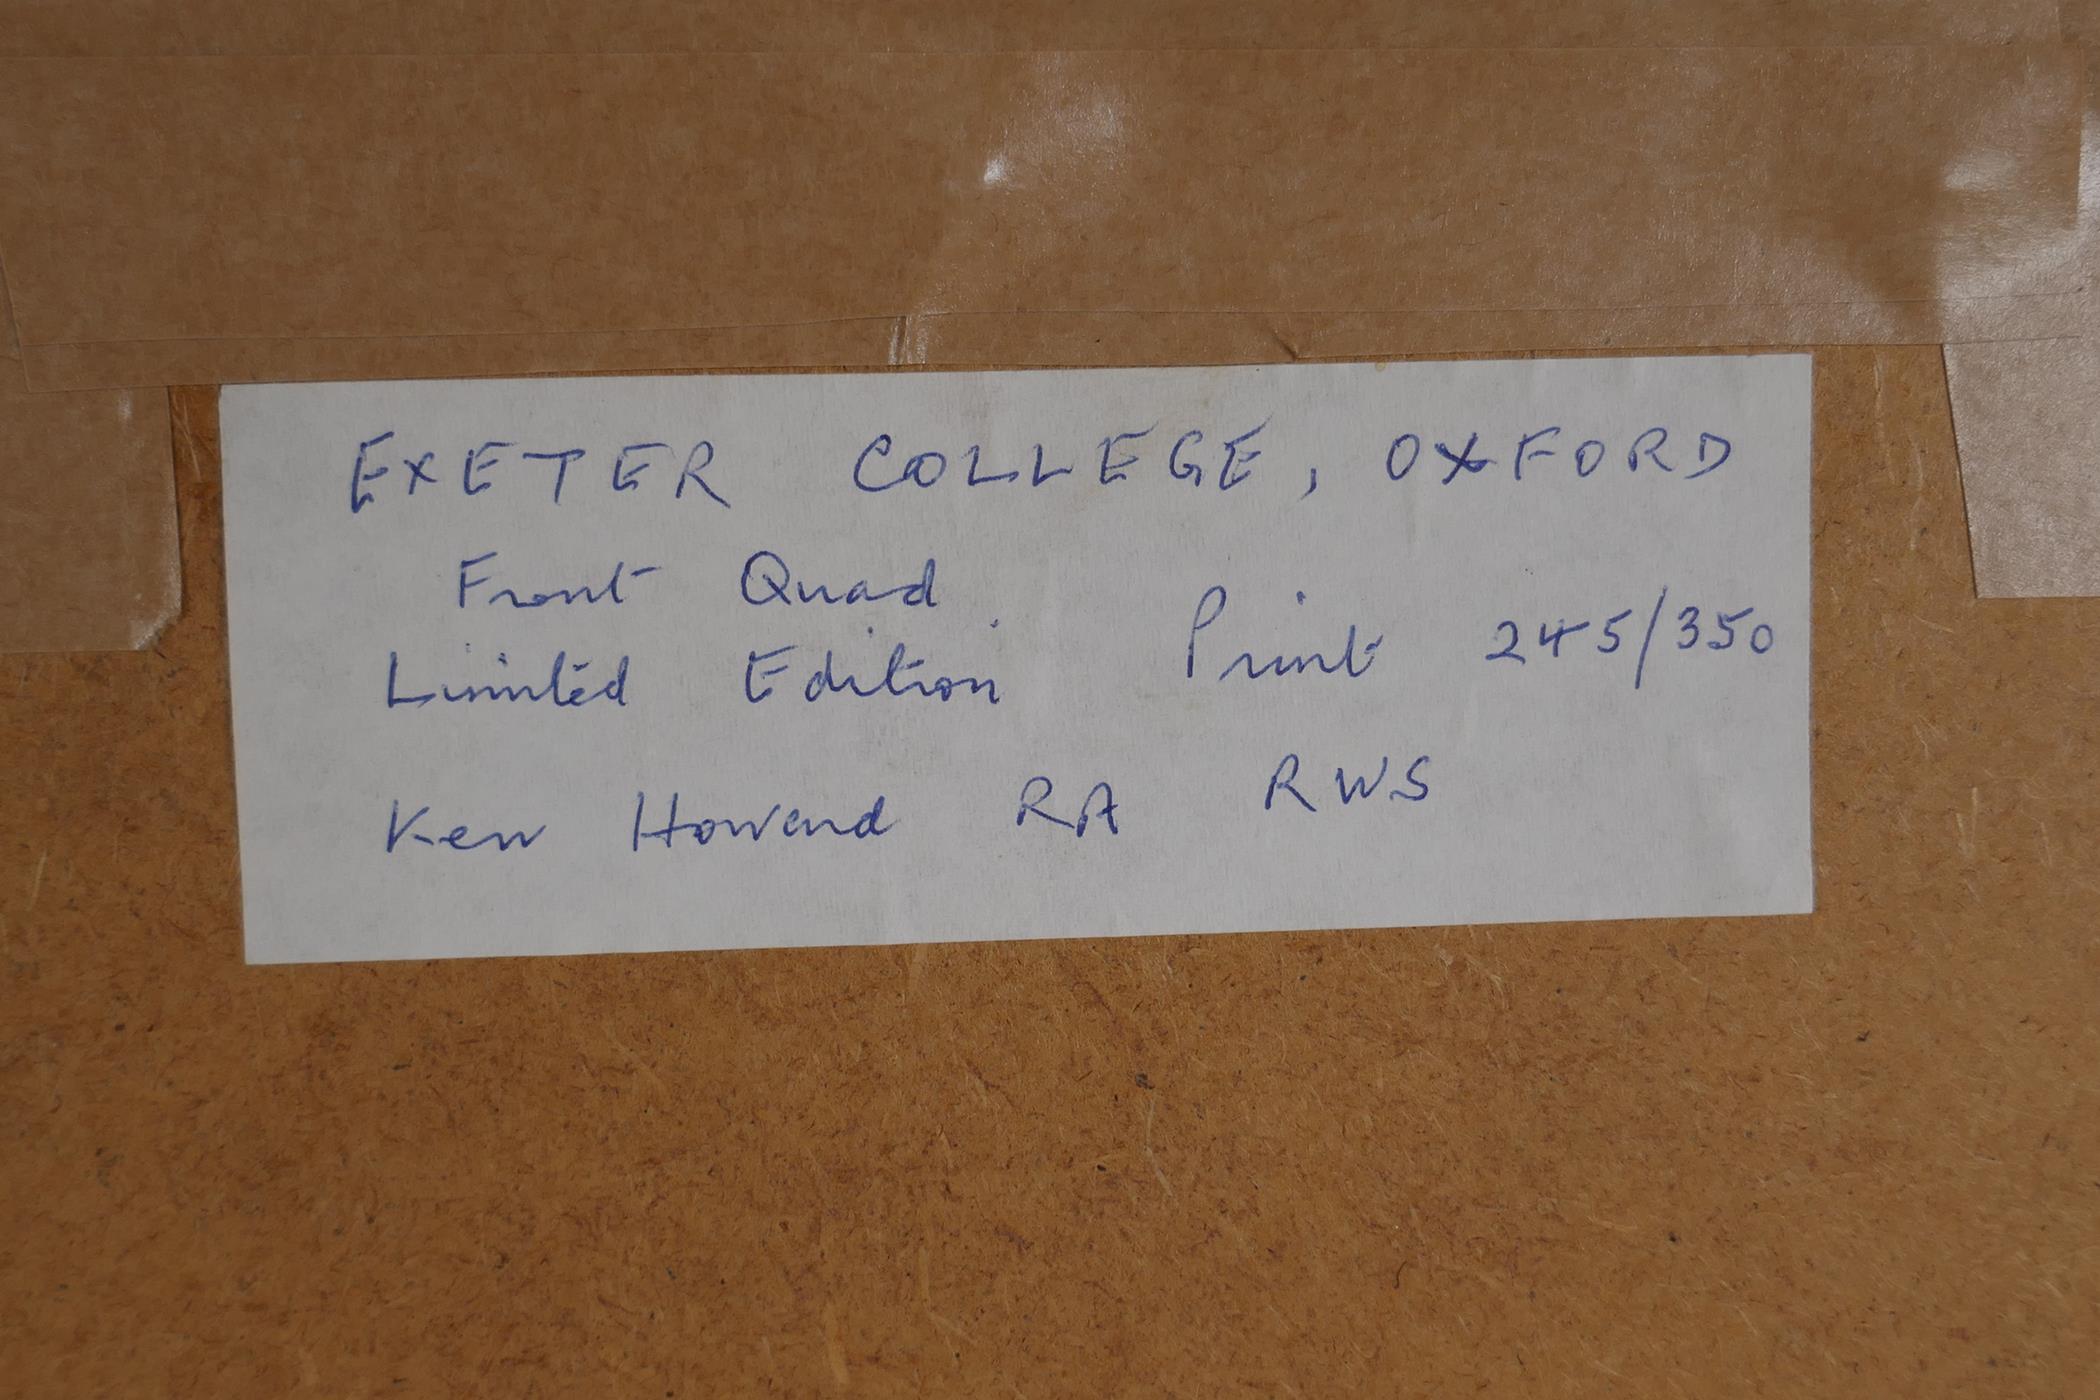 EXETER COLLEGE, OXFORD
Front Quad
Limited Edition Print 245/350
Ken Howard RA RWS